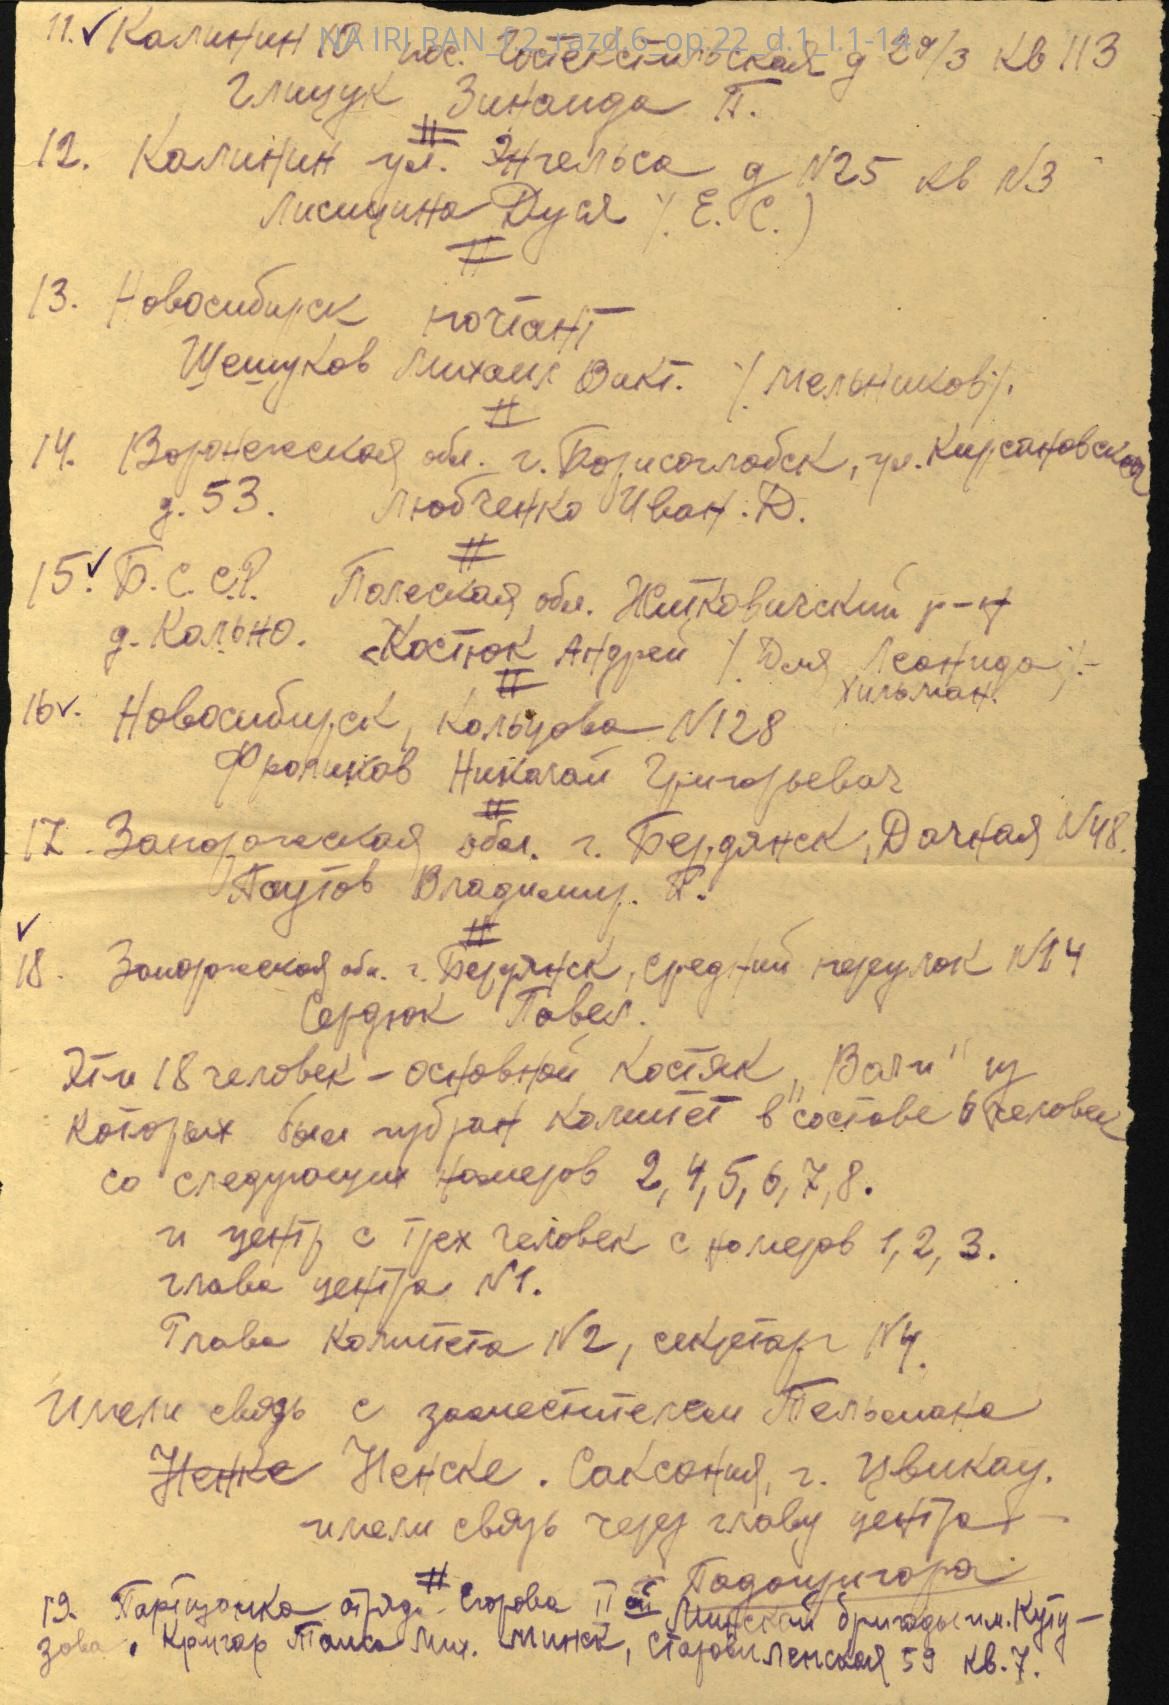 NA IRI RAN_f.2_razd.6_op.22_d.1_l.1-14
11. ✓ Калинин 10 пос. Текстильская д 29/3 кв 113
Глицук Зинаида П.
12. Калинин ул. Энгельса д №25 кв №3
Лисицина Дуся /. Е. С. )
13. Новосибирск почтант
Шешуков Михаил Викт. /. Мельников /.
14. Воронежская обл. г. Борисоглебск, ул. Кирсановская
д. 53. Любченко Иван. Д.
15. ✓ Б. С. С.Р. Полеская обл. Житковичский р-н
д. Кольно. Костюк Андрей /. Для Леонида /.-
Хильман.
16 ✓. Новосибирск, Кольцова №128
Фроликов Николай Григорьевич
17. Запорожская обл. г. Бердянск, Дачная №48.
Паутов Владимир. П.
✓
18. Запорожская обл. г. Бердянск, средний переулок №14
Сердюк Павел.
Эти 18 человек - основной костяк „Вали" из
которых был избран комитет в составе 6 человек
со следующих номеров 2, 4, 5, 6, 7, 8.
и центр с трех человек с номеров 1, 2, 3.
глава центра №1.
Глава Комитета №2, секретарь №4.
Имели связь с заместителем Тельмана
Ненке Ненске. Саксония, г. Цвикау.
имели связь через главу центра -
Подопригора
19. Партизанка отряда Егорова II ой Минской бригады им. Куту-
зова. Кригар Таиса Мих. Минск, Старовиленская 59 кв. 7.